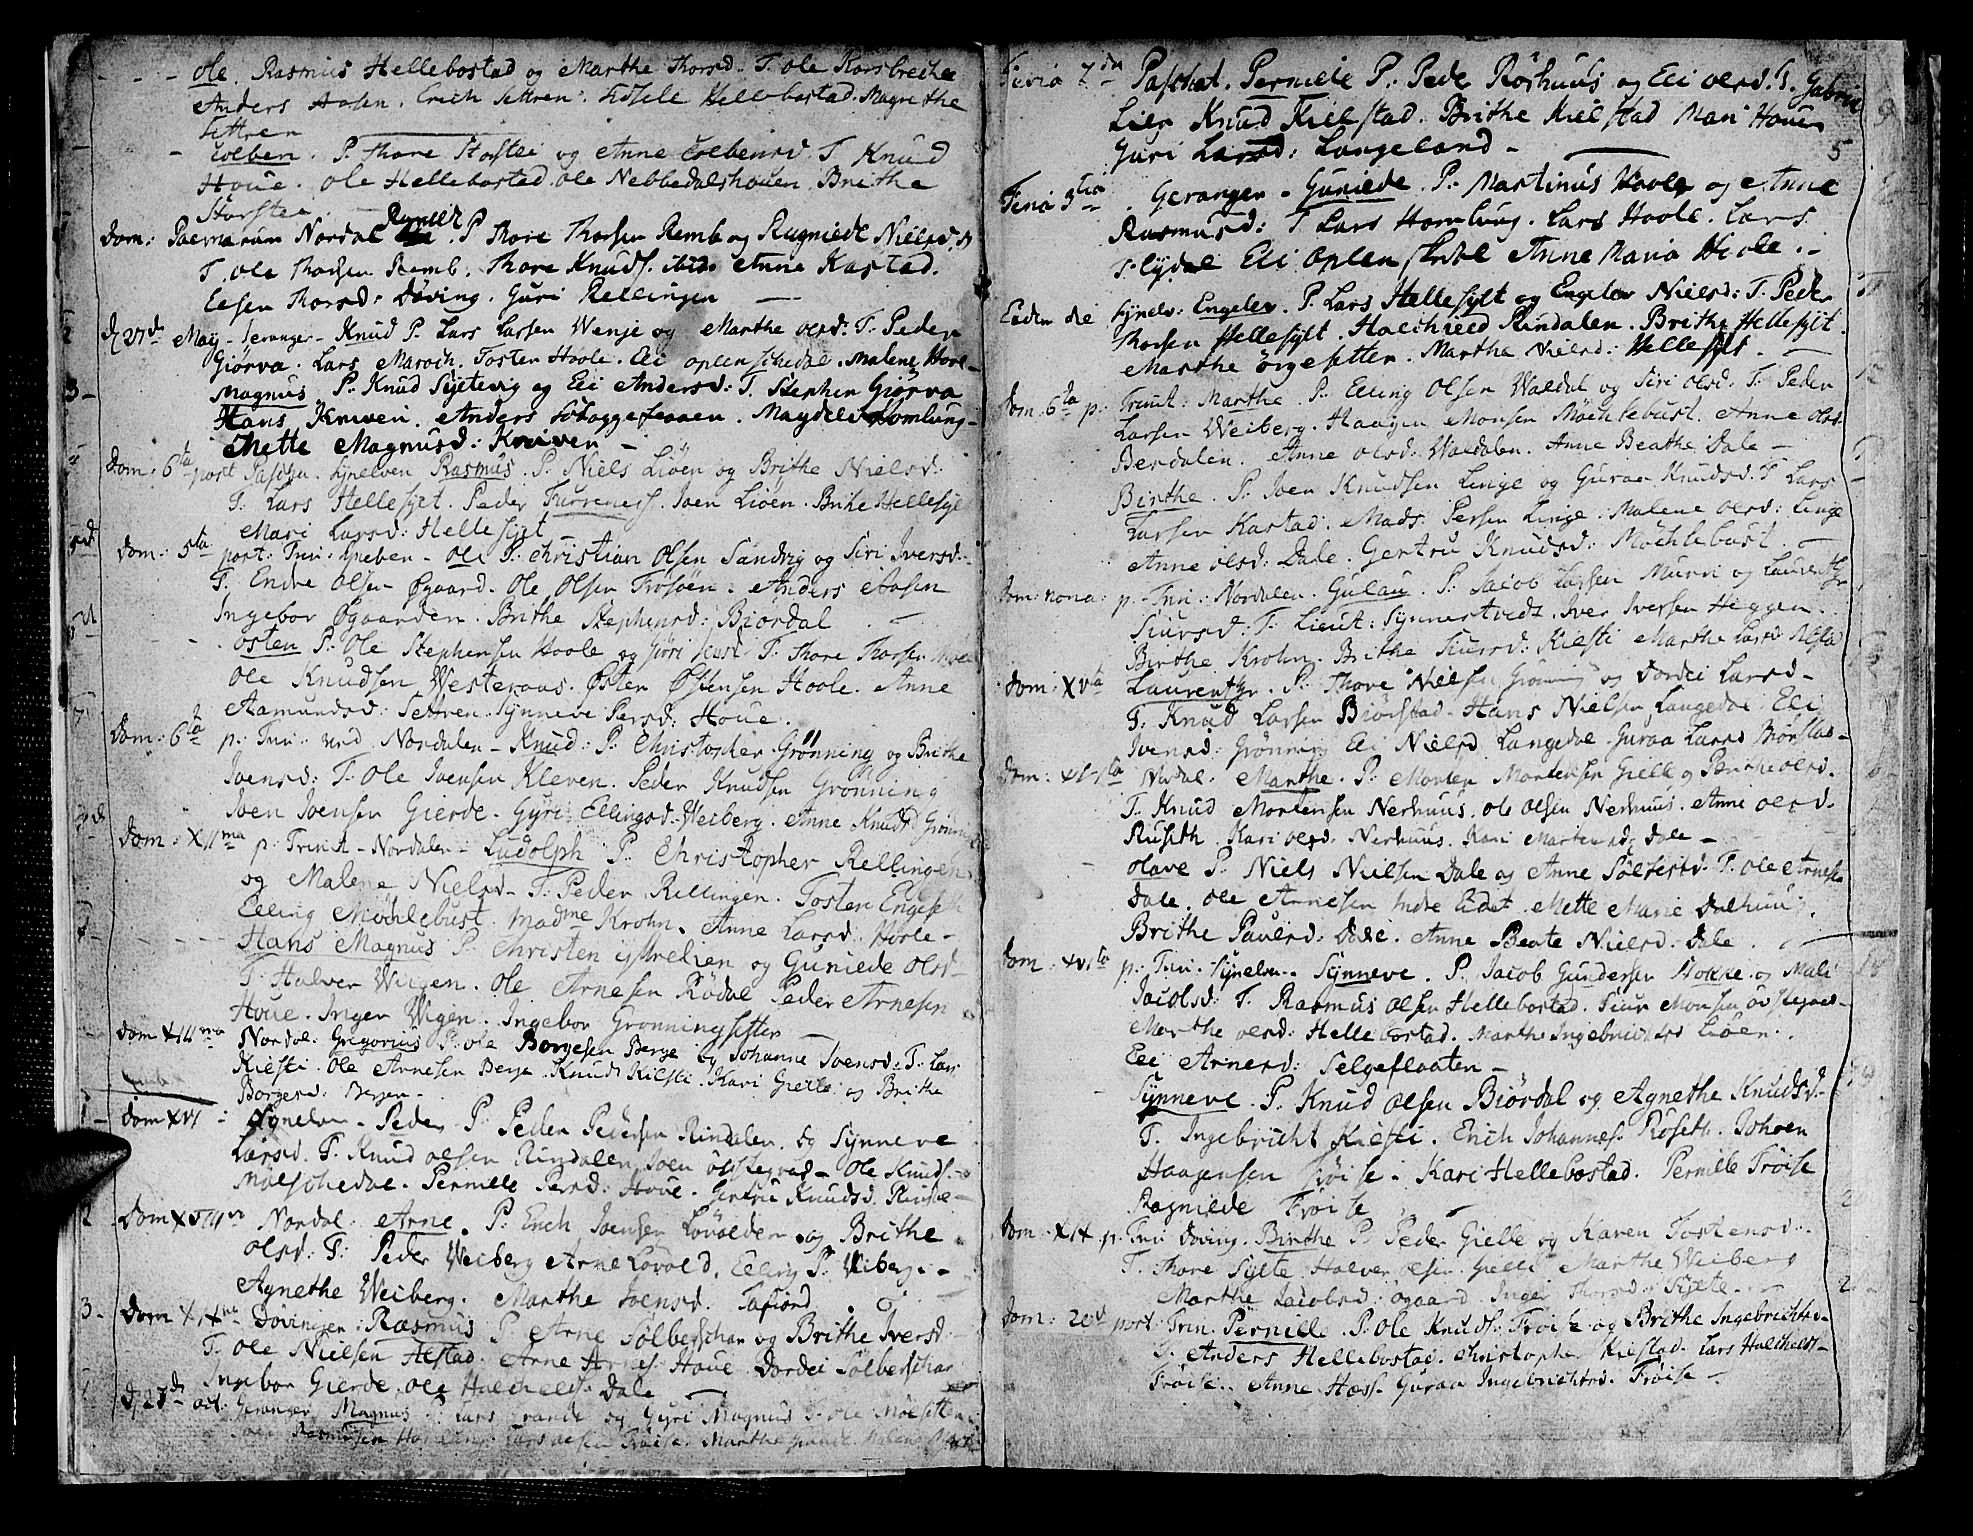 Ole. Rasmus Hellebostad og Marthe Thorsd. T. Ole Korsbrechee
Anders Aasen. Erich Settren. Sidsele Hellebostad. Magrethe
Settren
Colben. P. Thore Storstei og Anne Colbensd. T. Knud
Houe. Ole Hellebostad. Ole Nebbedalshouen. Brithe
Storstee.
Dom: Palmarum Nordal P. Thore Thorsen Remb og Rugniede Nielsd.
T. Ole Thorsen Remb. Thore Knuds. ibid. Anne Kastad.
Eesen Thorsd: Døving. Guri Rellingen —
D. 27de May - Geranger - Knud P. Lars Larsen Wenje og Marthe Olsd: T. Peder
Giørva. Lars Maroch. Tosten Hoole. Eli Oplenschedal. Malene Hoel
3 - Magnus P. Knud Syltevig og Eli Andersd: T. Stephen Giørva
Hans Kniven. Anders Schaggeflaaen. Magdele Homlung -
Mette Magnusd: Kniven —
Dom: 6ta post Pasch. Synelven Rasmus. P. Niels Liøen og Brithe Nielsd.
T. Lars Hellesylt. Peder Furrenes. Joen Liøen. Brithe Hellesylt
Mari Larsd: Hellesylt
Dom: 5ta post: Trin: Gneben - Ole P. Christian Olsen Sandvig og Siri Iversd.
T. Endre Olsen Øgaard. Ole Olsen Frøsøen. Anders Aasen
Ingebor Øgaarden. Brithe Stephensd: Biørdal . —
Osten P. Ole Stephensen Hoole og Giøri Jensd. T. Thore Thorsen
Ole Knudsen Westeraas. Østen Østensen Hoole. Anne
Aamundsd: Settren. Synneve Persd: Houe.
Dom: 6ta p. Trin: ved Nordalen - Knud: P. Christopher Grønning og Brithe
Joensd: T. Ole Joensen Kleven. Peder Knudsen Grønning
Joen Joensen Gierde. Gyri Ellingsd. Weiberg. Anne Knudsd Grønning
Dom: XIIma p. Trinit - Nordalen - Ludolph P. Christopher Rellingen
og Malene Nielsd - T. Peder Rellingen. Tosten Engeseth
Elling Møchlebust. Madme Krohn. Anne Larsd. Hoole -
Hans Magnus P. Christen Ystrelien og Guniede Olsd -
T. Halvor Wigen. Ole Arnesen Rødal Peder Arnesen
Houe. Inger Wigen. Ingebor Grønningsetter —
Dom XIIIma Nordal: Gregorius P. Ole Borgesen Berge og Johanne Joensd: T. Lars
Kilsti. Ole Arnesen Berge. Knud Kilsti. Kari Gielle og Brithe
Borgesd: Bergen -
1 - Dom XVI : Synelven - Peder P. Peder Pedersen Rindalen og Synneve
Larsd. T. Knud Olsen Rindalen. Joen Ødstegaard - Ole Knuds. -
Molschedal. Pernille Persd: Houe. Gertru Knudsd. Rindal -
2 - Dom XVIII Nordal: Arne. P. Erich Joensen Løvolden og Brithe
Olsd: T. Peder Weiberg Arne Løvold. Elling P. Wiberg. -
Agnethe Weiberg. Marthe Joensd. Tafiord . —
3 - Dom XIXna Døvingen: Rasmus P. Arne Sølberschar og Brithe Iversd.
T. Ole Nielsen Alstad. Arne Arnes. Houe. Dordei Sølberschar
Ingebor Gierde. Ole Halchelds. Dale —
D. 27de Oct: Geranger. Magnus P. Lars Grande og Gyri Magnus T. Ole Molsetten
Rasmusen Homlung. Lars Olsen Frøise. Marthe Grande. Malene
Feria 2da Paschat. Pernille P. Pede Røshuus og Eli Olsd. T. Gabrie
Lier Knud Kielstad. Brithe Kielstad Mari Houe
Guri Larsd: Langeland - 5
Feria 3tia . Geranger - Guniede. P. Martinus Hoole og Anne
Rasmusd: T Lars Homlung. Lars Hoole. Lars
Flydal Eli Oplenskedal Anne Maria Hoole . -
Eadem die Synelv: Engelev P. Lars Hellesylt og Engelev Nielsd: T. Peder
Thorsen Hellesylt. Halchield Rindalen. Brithe Hellesylt.
Marthe Ørgesetter. Marthe Nielsd: Hellesylt . —
Dom: 6ta p: Trinit: Marthe P. Elling Olsen Waldal og Siri Olsd: T: Peder
Larsen Weiberg. Haagen Monsen Møchlebust. Anne Olsd
Berdalen. Anne Olsd: Waldalen. Anne Beathe Dale —
Birthe. P. Joen Knudsen Linge og Guraa Knudsd. T. Lars
Larsen Kastad. Mads Persen Linge. Malene Olsd: Linge
Anne Olsd: Dale. Gertru Knudsd: Møchlebust . —
Dom: nona: p. Trin: Nordalen. Gulau. P. Jacob Larsen Murvi og Laurentze
Siursd: T. Lieut: Synnestvedt. Iver Iversen Heggen.
Birthe Krohn. Brithe Siursd: Kilsti Marthe Larsd Alstad
Dom: XVta Laurentze. P. Thore Nielsen Grønning og Dordei Larsd -
T. Knud Larsen Biørstad. Hans Nielsen Langedal. Eli
Iversd: Grønning Eli Nielsd Langedal. Guraa Larsd Biørstad -
Dom: XVIta Nordal. Marthe. P. Morten Mortensen Gielle og Birthe Olsd.
T. Knud Mortensen Nerhuus. Ole Olsen Nerhuus. Anne Olsd.
Ruseth. Kari Olsd: Nerhuus. Kari Mortensd: Dale —
Olave P. Niels Nielsen Dale og Anne Sølfestsd. T. Ole Arnesen
Dale. Ole Arnesen Indre Eidet. Mette Marie Dalhuus.
Brithe Paulsd: Dale. Anne Beate Nielsd: Dale . —
Dom: XVIta p: Trin: Synelven. Synneve. P. Jacob Gundersen Stokke og Mali
Jacobsd: T. Rasmus Olsen Hellebostad. Siur Monsen Ødstegaard -
Marthe Olsd: Hellebostad. Marthe Ingebrichtsd Liøen.
Eli Arnesd: Selgeflaaten —
Synneve. P. Knud Olsen Biørdal og Agnethe Knudsd -
T. Ingebricht Kilsti. Erich Johannes. Røseth. Johven
Haagensen Frøise. Kari Hellebostad. Pernille Frøise
Ragniede Frøise —
Dom: XIX p: Trin Døving. Birthe P. Peder Gielle og Karen Tostensd:.
T. Thore Sylte Halver Olsen. Gielle Marthe Weiberg
Marthe Jacobsd: Øgaard Inger Thorsd. Sylte - . —
Dom: 20de post: Trin. Pernille. P. Ole Knuds: Frøise og Brithe Ingebrichtsd.
T. Anders Hellebostad. Christopher Kielstad. Lars Halchelds -
Frøise. Anne Hass. Guraa Ingebrichtsd. Frøise —